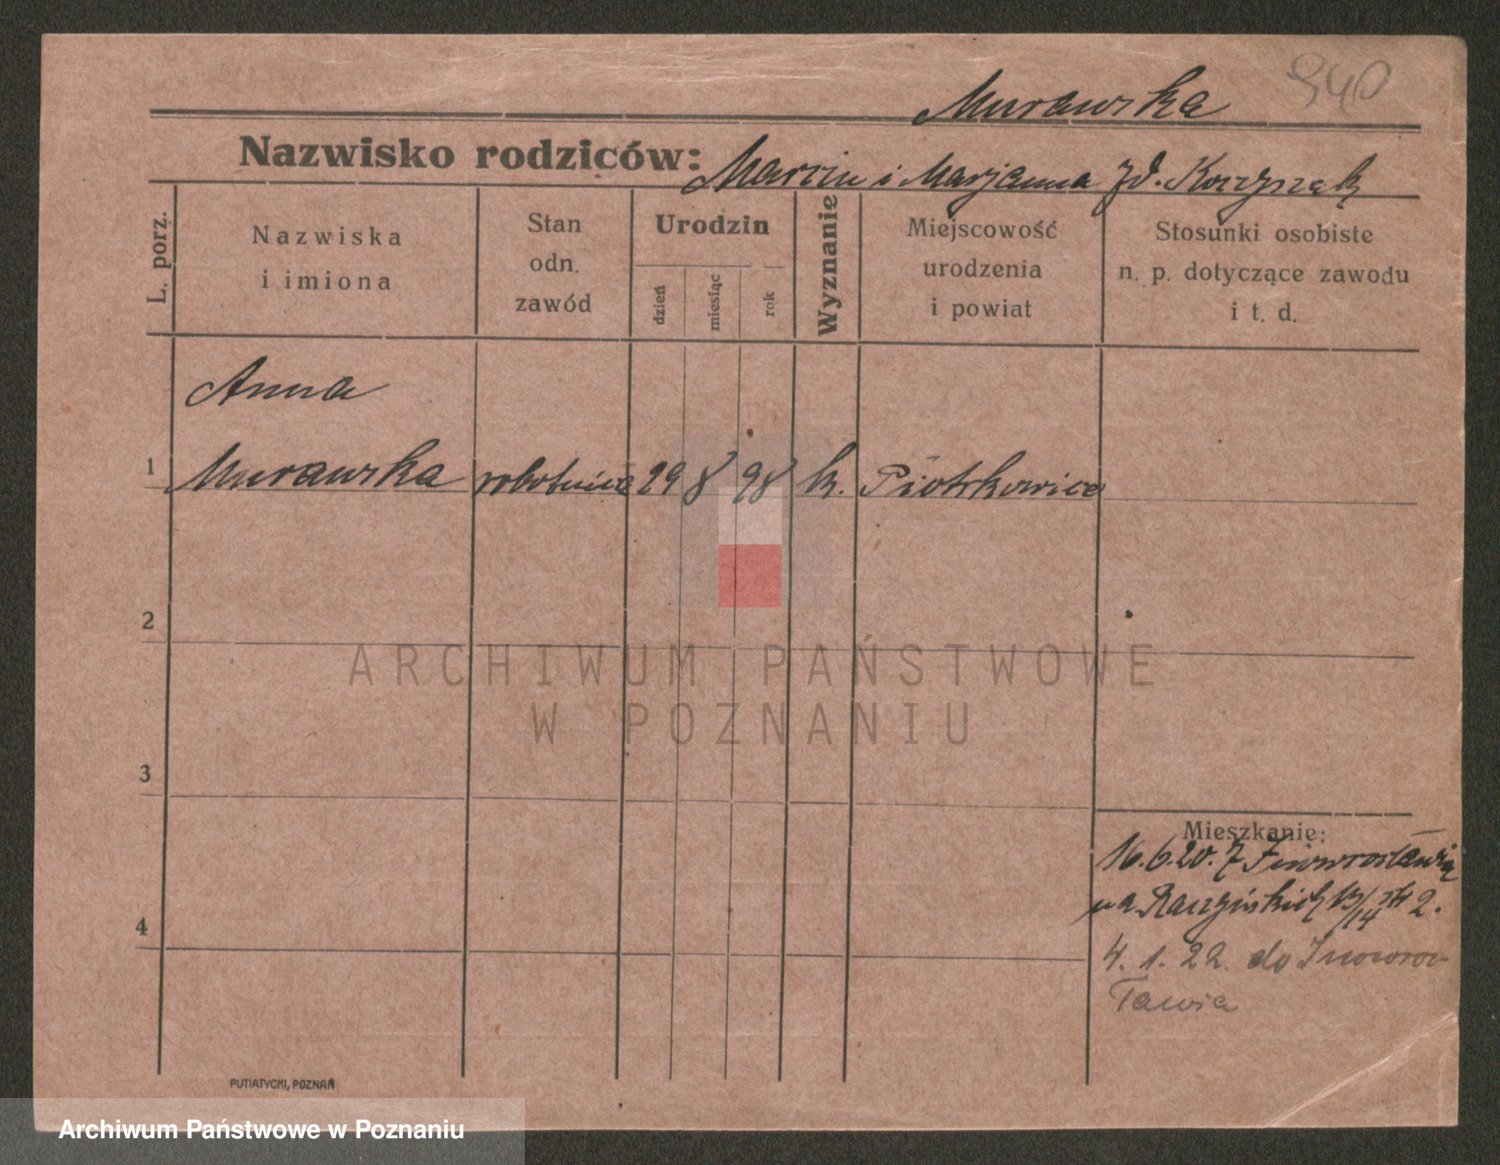 Murawska
940
Nazwisko rodziców: Marcin i Marjanna zd.
L. porz.
Nazwiska
i imiona
Stan
odn.
zawód
Urodzin
dzień
miesiąc
rok
Wyznanie
Miejscowość
urodzenia
i powiat
Stosunki osobiste
n. p. dotyczące zawodu
i t. d.
Anna
1 Murawska robotnica 29 8 98 k. Piotrkowice
2
3
4
Mieszkanie:
16.6.20. z Inowrocławia
na 13/14 2.
4. 1. 22. do Inowroc-
ławia
PUTIATYCKI, POZNAŃ
ARCHIWUM PAŃSTWOWE
W POZNANIU
Archiwum Państwowe w Poznaniu